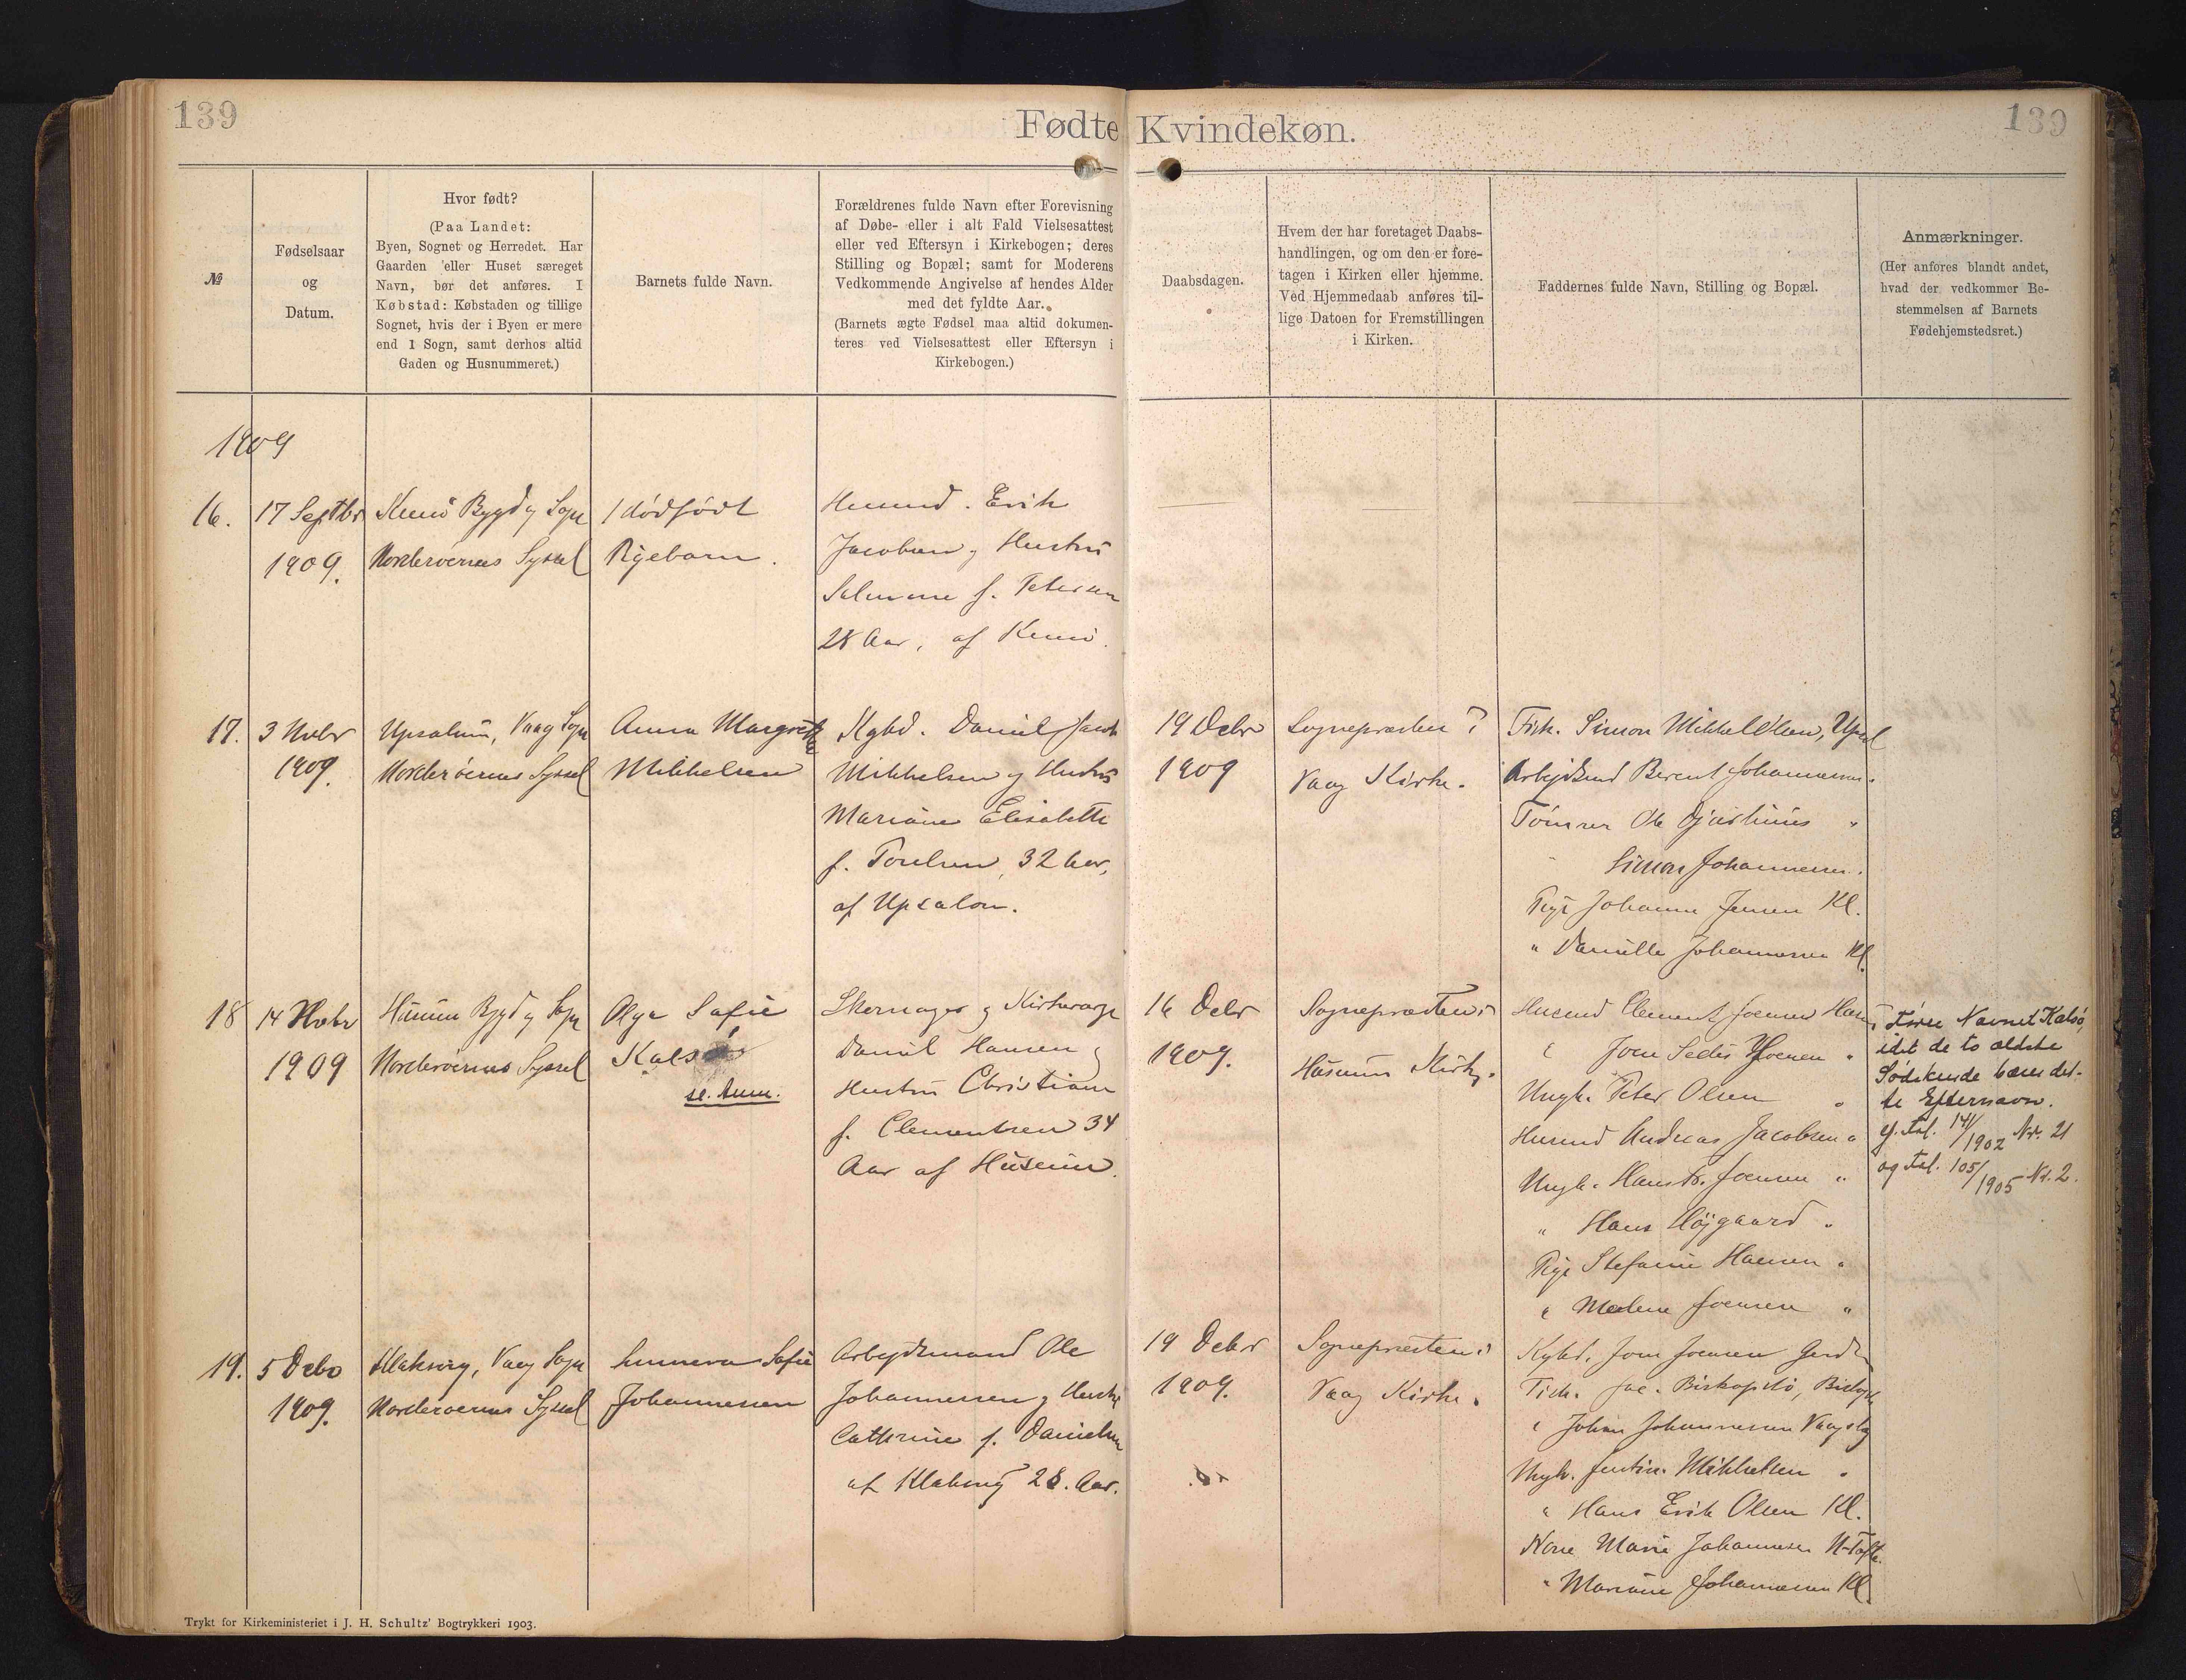 139
Fødte Kvindekøn.
139
№
Fødselsaar
og
Datum.
Hvor født?
(Paa Landet:
Byen, Sognet og Herredet. Har
Gaarden eller Huset særeget
Navn, bør det anføres. I
Købstad: Købstaden og tillige
Sognet, hvis der i Byen er mere
end 1 Sogn, samt derhos altid
Gaden og Husnummeret.)
Barnets fulde Navn.
Forældrenes fulde Navn efter Forevisning
af Døbe- eller i alt Fald Vielsesattest
eller ved Eftersyn i Kirkebogen; deres
Stilling og Bopæl; samt for Moderens
Vedkommende Angivelse af hendes Alder
med det fyldte Aar.
(Barnets ægte Fødsel maa altid dokumen-
teres ved Vielsesattest eller Eftersyn i
Kirkebogen.)
Daabsdagen.
Hvem der har foretaget Daabs-
handlingen, og om den er fore-
tagen i Kirken eller hjemme.
Ved Hjemmedaab anføres til-
lige Datoen for Fremstillingen
i Kirken.
Faddernes fulde Navn, Stilling og Bopæl.
Anmærkninger.
(Her anføres blandt andet,
hvad der vedkommer Be-
stemmelsen af Barnets
Fødehjemstedsret.)
1909
16.
17 Septbr
1909.
Kunø Bygd og Sogn
Norderøernes Syssel
1 dødfødt
Pigebarn.
Husmd. Erik
Jacobsen og Hustru
f. Petersen
28 Aar, af Kunø.
17.
3 Novbr
1909.
Upsalum, Vaag Sogn
Norderøernes Syssel
Anna Margrethe
Mikkelsen
Kgbd. Daniel Jacob
Mikkelsen og Hustru
Mariane Elisabeth
f. Poulsen, 32 Aar,
af Upsalom.
19 Debr
1909
Sognepræsten i
Vaag Kirke.
Fisk. Simon Mikkel Olsen, Upsal
Arbejdsmd Berent Johannesen "
Tømrer Ole "
" Simon Johannesen "
Pige Johanne Jensen Kl.
" Danielle Johannesen Kl.
18
14 Novbr
1909
Husum Bygd og Sogn
Norderøernes Syssel
Olga Sofie
Kalsø
se. Anm.
og Kirkeværge
Daniel Hansen og
Hustru Christiane
f. Clementsen 34
Aar af Husum.
16 Debr
1909.
Sognepræsten i
Husum Kirke.
Husmd Clement Joensen Husum
" Joen Joensen "
Ungk. Peter Olsen "
Husmd Andreas Jacobsen "
Ungk. Hans Joensen "
" Hans Højgaard "
Pige Stefanie Hansen "
" Malene Joensen "
Navnet Kalsø,
idet de to ældste
Sødskende bærer det-
te Efternavn.
cf. Fol. 141/1902 Nr. 21
og Fol. 105/1905 Nr. 2.
19.
5 Debr
1909.
Klaksvig, Vaag Sogn
Norderøernes Syssel
Sunneva Sofie
Johannesen
Arbejdsmand Ole
Johannesen og Hustru
Cathrine f. Danielsen
af Klaksvig 28. Aar.
19 Debr
1909.
Sognepræsten i
Vaag Kirke.
Kgbd. Joen Joensen
Fisk. Jac. Biskopstø,
" Johan Johannesen
Ungk. Mikkelsen "
" Hans Erik Olsen Kl.
Kone Marie Johannesen
" Mariane Johannesen Kl.
Trykt for Kirkeministeriet i J. H. Schultz' Bogtrykkeri 1903.